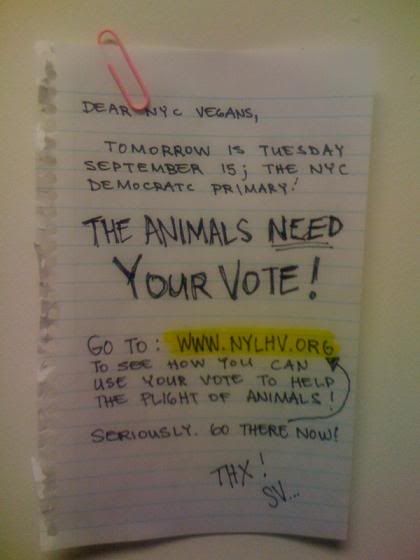 DEAR NYC VEGANS,
TOMORROW IS TUESDAY
SEPTEMBER 15; THE NYC
DEMOCRATC PRIMARY!
THE ANIMALS NEED
YOUR VOTE!
GO TO: WWW.NYLHV.ORG
TO SEE HOW YOU CAN
USE YOUR VOTE TO HELP
THE PLIGHT OF ANIMALS!
SERIOUSLY. GO THERE NOW!
THX!
SV...